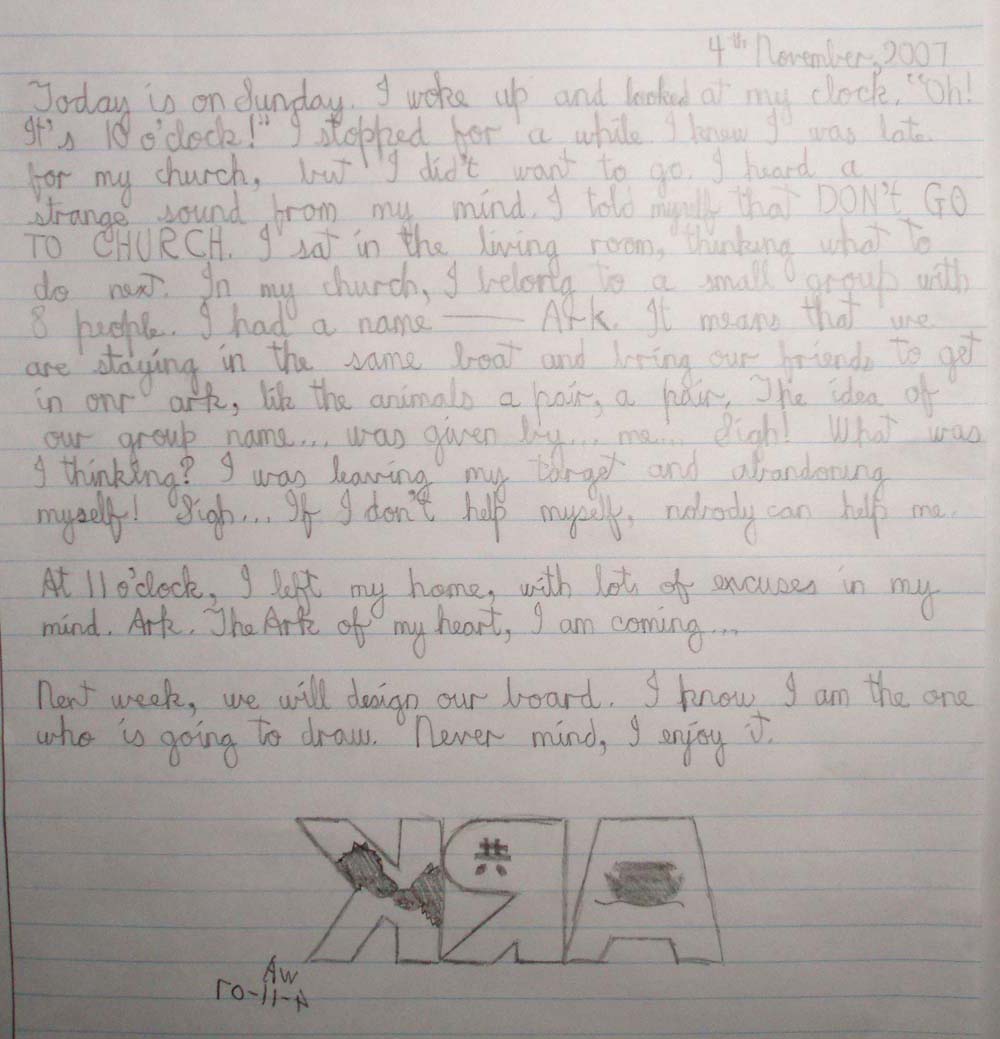 4th November, 2007
Today is on Sunday. I woke up and looked at my clock. "Oh!
It's 10 o'clock!" I stopped for a while. I knew I was late
for my church, but I didn't want to go. I heard a
strange sound from my mind. I told myself that DON't GO
TO CHURCH. I sat in the living room, thinking what to
do next. In my church, I belong to a small group with
8 people. I had a name —— Ark. It means that we
are staying in the same boat and bring our friends to get
in our ark, lik the animals a pair, a pair. The idea of
our group name... was given by... me... Sigh! What was
I thinking? I was leaving my target and abandoning
myself! Sigh... If I don't help myself, nobody can help me.
At 11 o'clock, I left my home, with lots of excuses in my
mind. Ark. The Ark of my heart, I am coming...
Next week, we will design our board. I know I am the one
who is going to draw. Never mind, I enjoy it.
ARK
共
AW
4-11-07